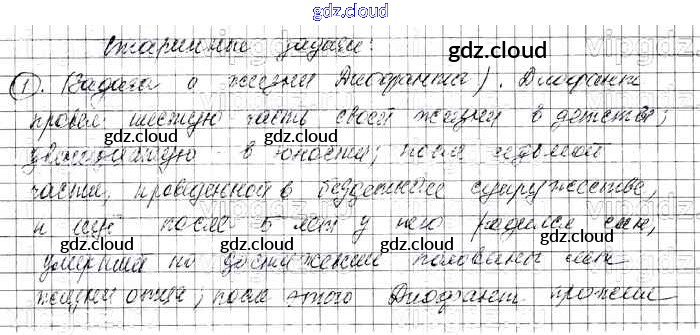 gdz.cloud
Старинные задачи:
gdz.cloud
①. (Задача о жизни Диофанта). Диофант
провел шестую часть своей жизни в детстве;
gdz.cloud gdz.cloud
двенадцатую - в юности; после седьмой
части, проведенной в бездетном супружестве,
gdz.cloud gdz.cloud
и ещё после 5 лет у него родился сын,
gdz.cloud gdz.cloud
умерший по достижении половины лет
жизни отца; после этого Диофант прожил
gdz.cloud gdz.cloud